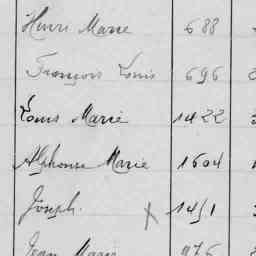 Henri Marie 688
François Louis 696
Louis Marie 1422
Alphonse Marie 1604
Joseph. X 1451
Jean Marie 976